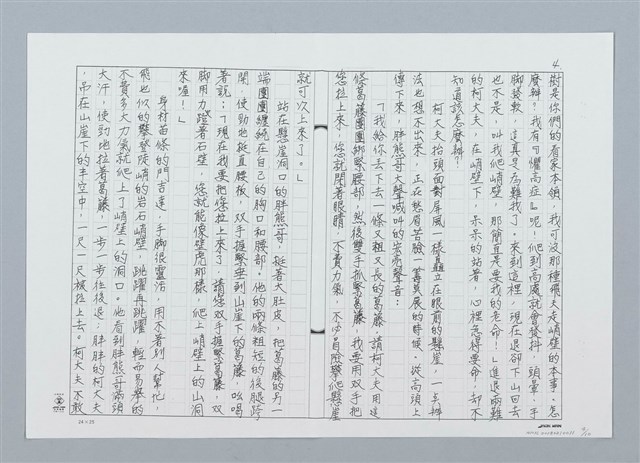 4.
對是你們的看家本領，我可沒那種飛大走峭壁的本事。怎
麼辦？我有『懼高症』呢！爬到高處就會發抖、頭暈、手
腳發軟，這真是為難我了。來到這裡，現在退卻下山回去
也不是，叫我爬上去，那簡直是要我的老命！」進退兩難
的柯大夫，在峭壁下，呆呆的站著，心裡急得要命，卻不
知道該怎麼辦？
柯大夫抬頭面對屏風一樣矗立在眼前的懸崖，一點辦
法也想不出來，正在愁眉苦臉、
的時候，從高頭上
傳下來，胖熊哥大聲喊叫的安慰聲音：
「我給你丟下去一條又粗又長的葛藤，請柯大夫用這
條葛藤團團綁緊腰部，然後雙手抓緊葛藤，我要用雙手把
您拉上來，您就閉著眼睛，不費力氣，不必冒險攀爬懸崖
就可以上來了。」
站在懸崖洞口的胖熊哥，挺著大肚皮，把葛藤的另一
端團團纏繞在自己的胸口和腰部。他的兩條粗短的後腿跨
開，使勁地挺直腰板，双手握緊垂到山崖下的葛藤，吆喝
著說：「現在我要把您拉上來了，請您双手握緊葛藤，双
腳用力蹬著石壁，您就能像壁虎那樣，爬上峭壁上的山洞
來喔！」
身材苗條的門吉達，手腳很靈活，用不著別人幫忙，
飛也似的攀登陡峭的岩石峭壁，跳躍再跳躍，輕而易舉的
不費多大力氣就爬上了峭壁上的洞口。他看到胖熊哥滿頭
大汗，使勁地拉著葛藤，一步一步往後退；胖胖的柯大夫
，吊在山崖下的半空中，一尺一尺被拉上去。柯大夫不敢
24×25